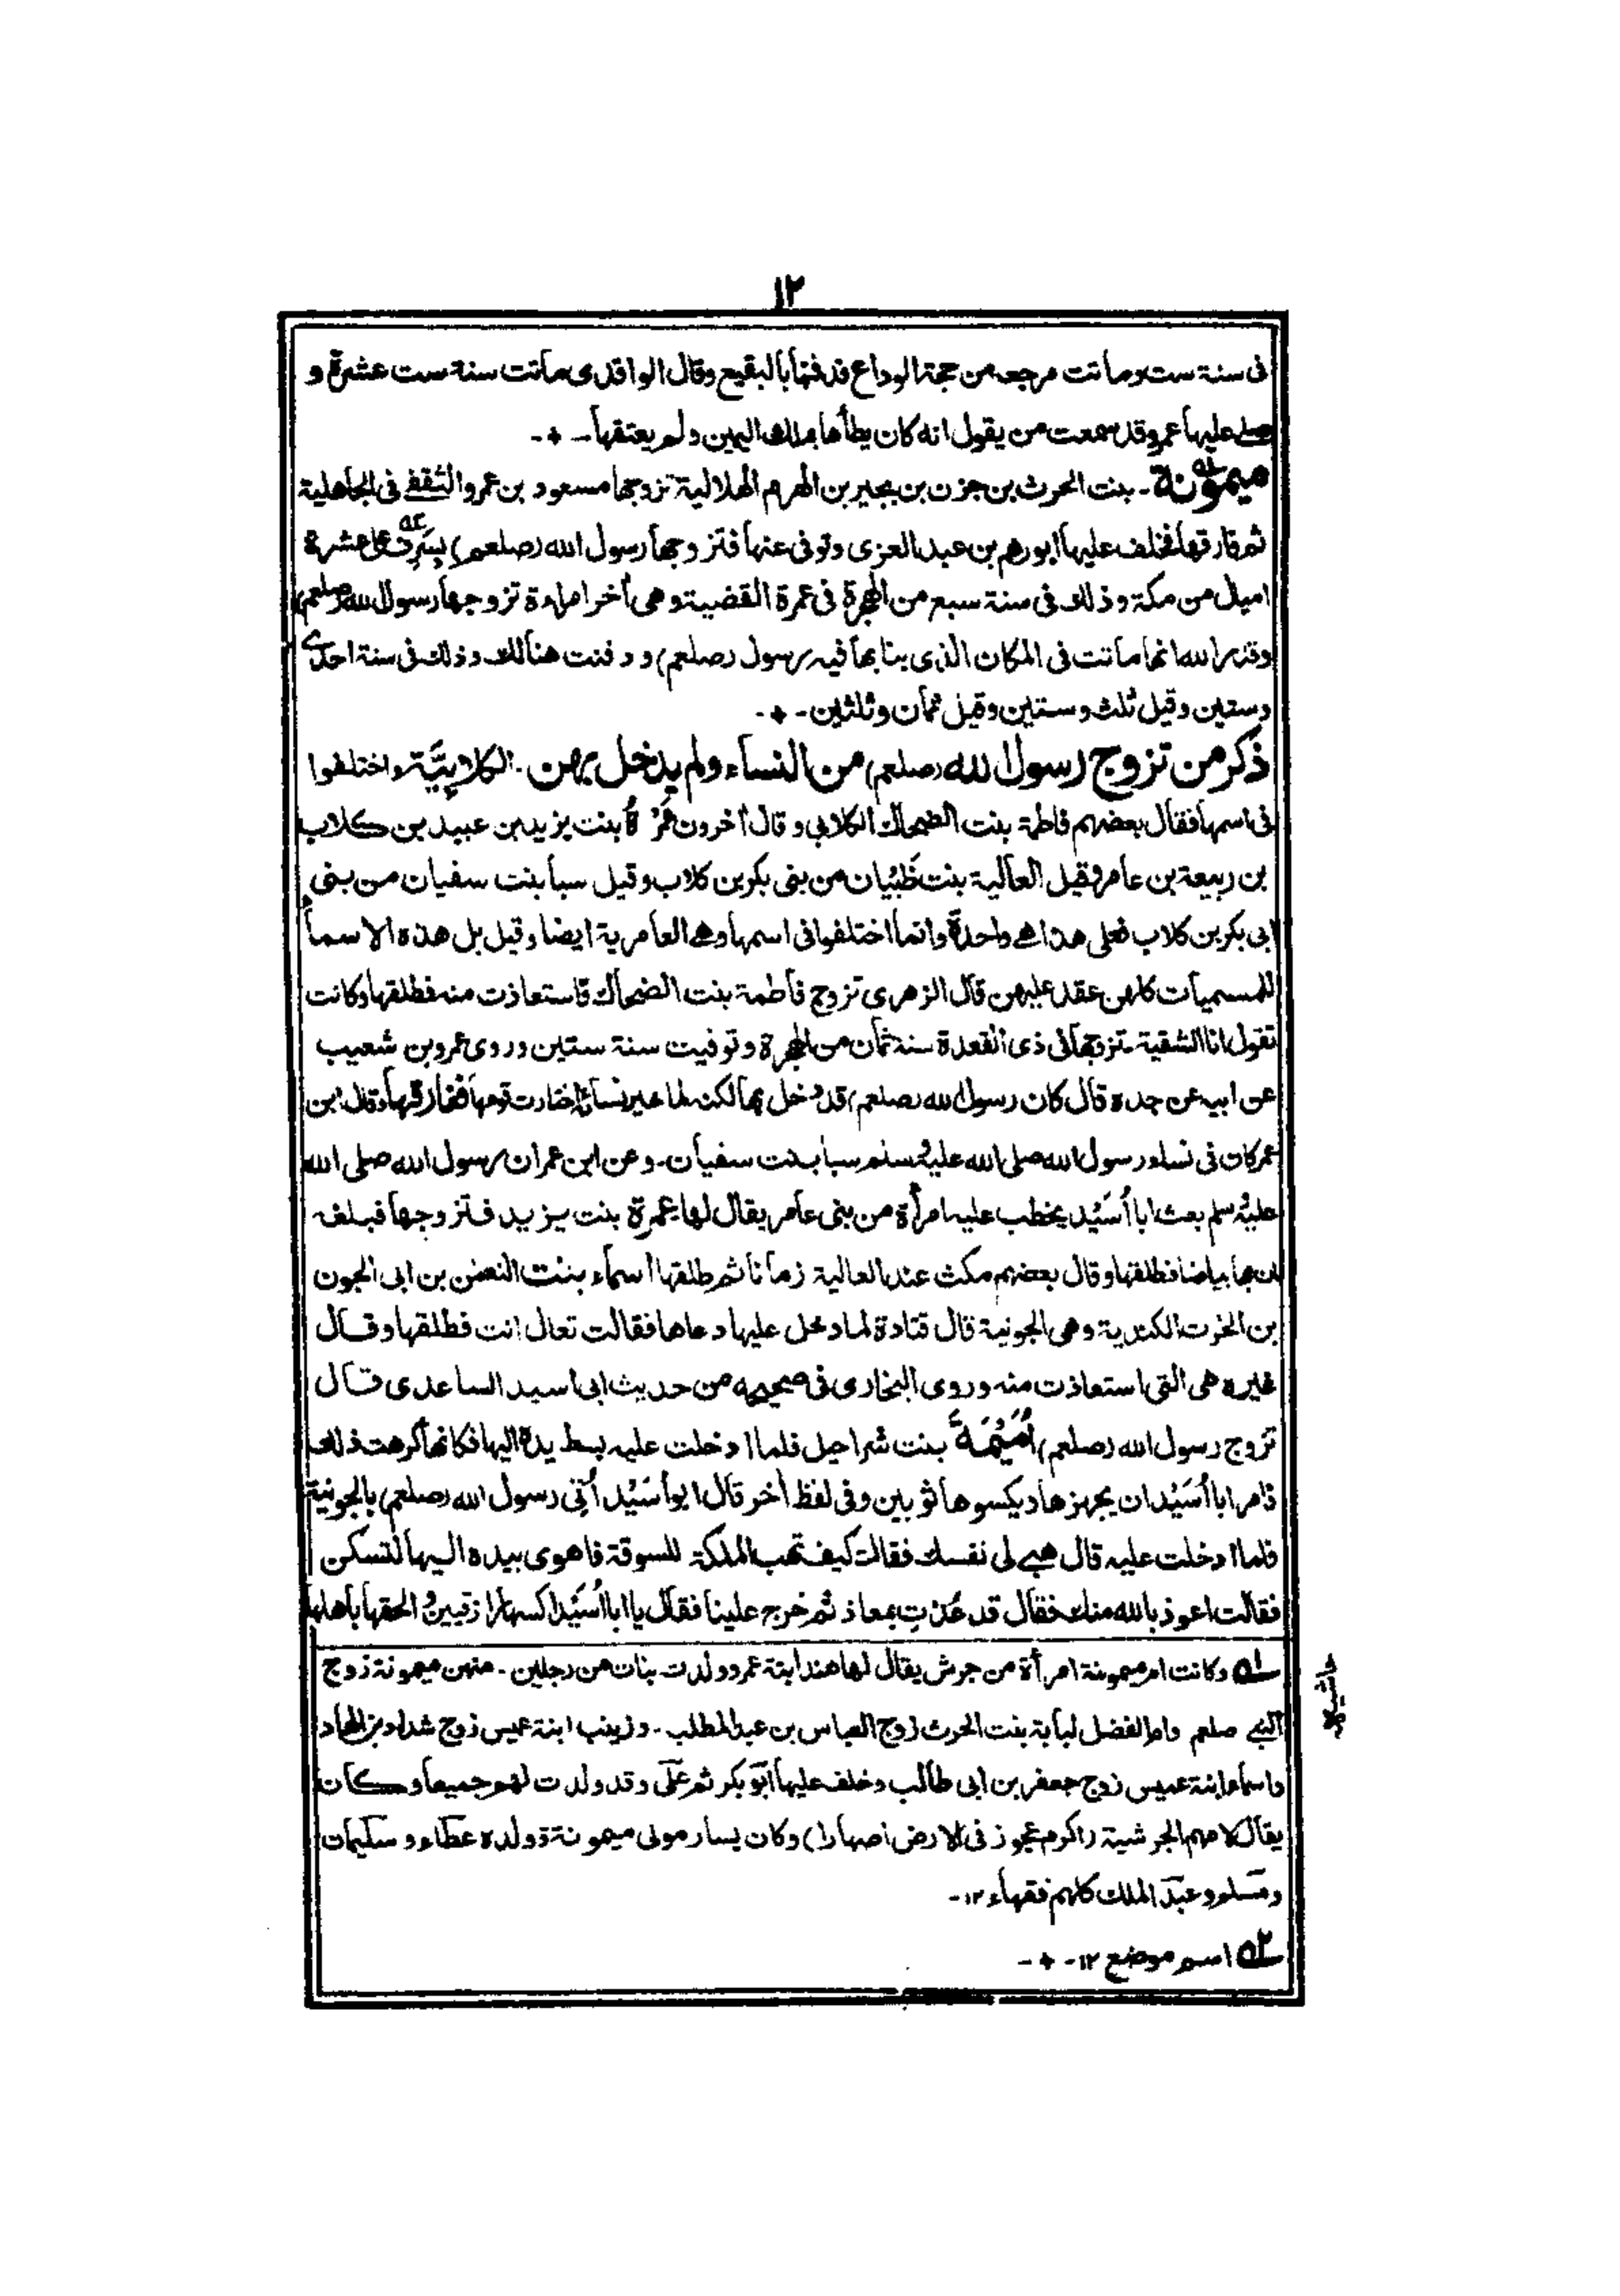 ١٢
فى سنة ست وماتت مرجعه من حجة الوداع فدفنها بالبقيع وقال الواقدى ماتت سنة ست عشرة و
صلے عليها عمر وقد سمعت من يقول انه كان يطأها بملك اليمين ولم يعتقها -
ميمونة - بنت الحرث بن حزن بن بجير بن الهرم الهلالية تزوجها مسعود بن عمرو الثقفے فى الجاهلية
ثم فارقها فخلف عليها ابورهم بن عبد العزى وتوفى عنها فتزوجها رسول الله (صلعم) بِسَرِف على عشرة
اميال من مكة وذلك فى سنة سبع من الهجرة فى عمرة القضية وهى أخر امراءة تزوجها رسول الله (صلعم)
وقدر الله انها ماتت فى المكان الذى بنا بها فيه رسول (صلعم) ودفنت هنالك وذلك فى سنة احدے
وستين وقيل ثلث وستين وقيل ثمان وثلثين -
ذكر من تزوج رسول الله (صلعم) من النساء ولم يدخل بهن - الكلابِيَّة واختلفوا
فى اسمها فقال بعضهم فاطمة بنت الضحاك الكلابى وقال أخرون عَمْرَةُ بنت يزيد بن عبيد بن كلاب
بن ربيعة بن عامر وقيل العالية بنت ظَبْيَان من بنى بكر بن كلاب وقيل سبا بنت سفيان من بنى
ابى بكر بن كلاب فعلى هذا هے واحدة وانما اختلفوا فى اسمها وهے العامرية ايضا وقيل بل هذه الاسماء
لمسميات كلهن عقد عليهن قال الزهرى تزوج فاطمة بنت الضحاك فاستعاذت منه فطلقها وكانت
تقول انا الشقية - تزوجها فى ذى القعدة سنة ثمان من الهجرة وتوفيت سنة ستين وروى عمرو بن شعيب
عن ابيه عن جده قال كان رسول الله (صلعم) قد دخل بها لكنه لما خير نسائه اختارت قومها ففارقها وقال ابن
عمر كان فى نساء رسول الله صلى الله عليه وسلم سبا بنت سفيان - وعن ابن عمر ان رسول الله صلى الله
عليه وسلم بعث ابا أُسَيْد يخطب عليه امرأة من بنى عامر يقال لها عمرة بنت يزيد فتزوجها فبلغه
ان بها بياضا فطلقها وقال بعضهم مكث عند العالية زمانا ثم طلقها اسماء بنت النعمٰن بن ابى الجون
بن الحرث الكندية وهى الجونية قال قتادة لما دخل عليها دعاها فقالت تعال انت فطلقها وقال
غيره هى التى استعاذت منه وروى البخارى فى صحيحه من حديث ابى اسيد الساعدى قال
تزوج رسول الله (صلعم) أُمَيْمَةَ بنت شراحيل فلما ادخلت عليه بسط يده اليها فكانها كرهت ذلك
فامر ابا أُسَيْد ان يجهزها ويكسوها ثوبين وفى لفظ أخر قال ابو أُسَيْد أُتِى رسول الله (صلعم) بالجونية
فلما ادخلت عليه قال هبے لى نفسك فقالت كيف تهب الملكة للسوقة فاهوى بيده اليها لتسكن
فقالت اعوذ بالله منك فقال قد عُذْتِ بمعاذ ثم خرج علينا فقال يا ابا اُسَيْد اكسها رازقيين والحقها باهلها
حاشيه
١ وكانت ام ميمونة امرأة من جرش يقال لها هند ابنة عمر وولدت بنات من رجلين - منهن ميمونة زوج
النبے صلعم وام الفضل لبابة بنت الحرث زوج العباس بن عبد المطلب - وزينب ابنة عميس زوج شداد بن الهاد
واسماء ابنة عميس زوج جعفر بن ابى طالب وخلف عليها ابو بكر ثم على وقد ولدت لهم جميعا وكان
يقال لامهم الجرشية (اكرم عجوز فى الارض اصهارا) وكان يسار مولى ميمونة وولده عطاء وسليمان
ومسلم وعبد الملك كلهم فقهاء ١٢ -
٢ اسم موضع ١٢ -